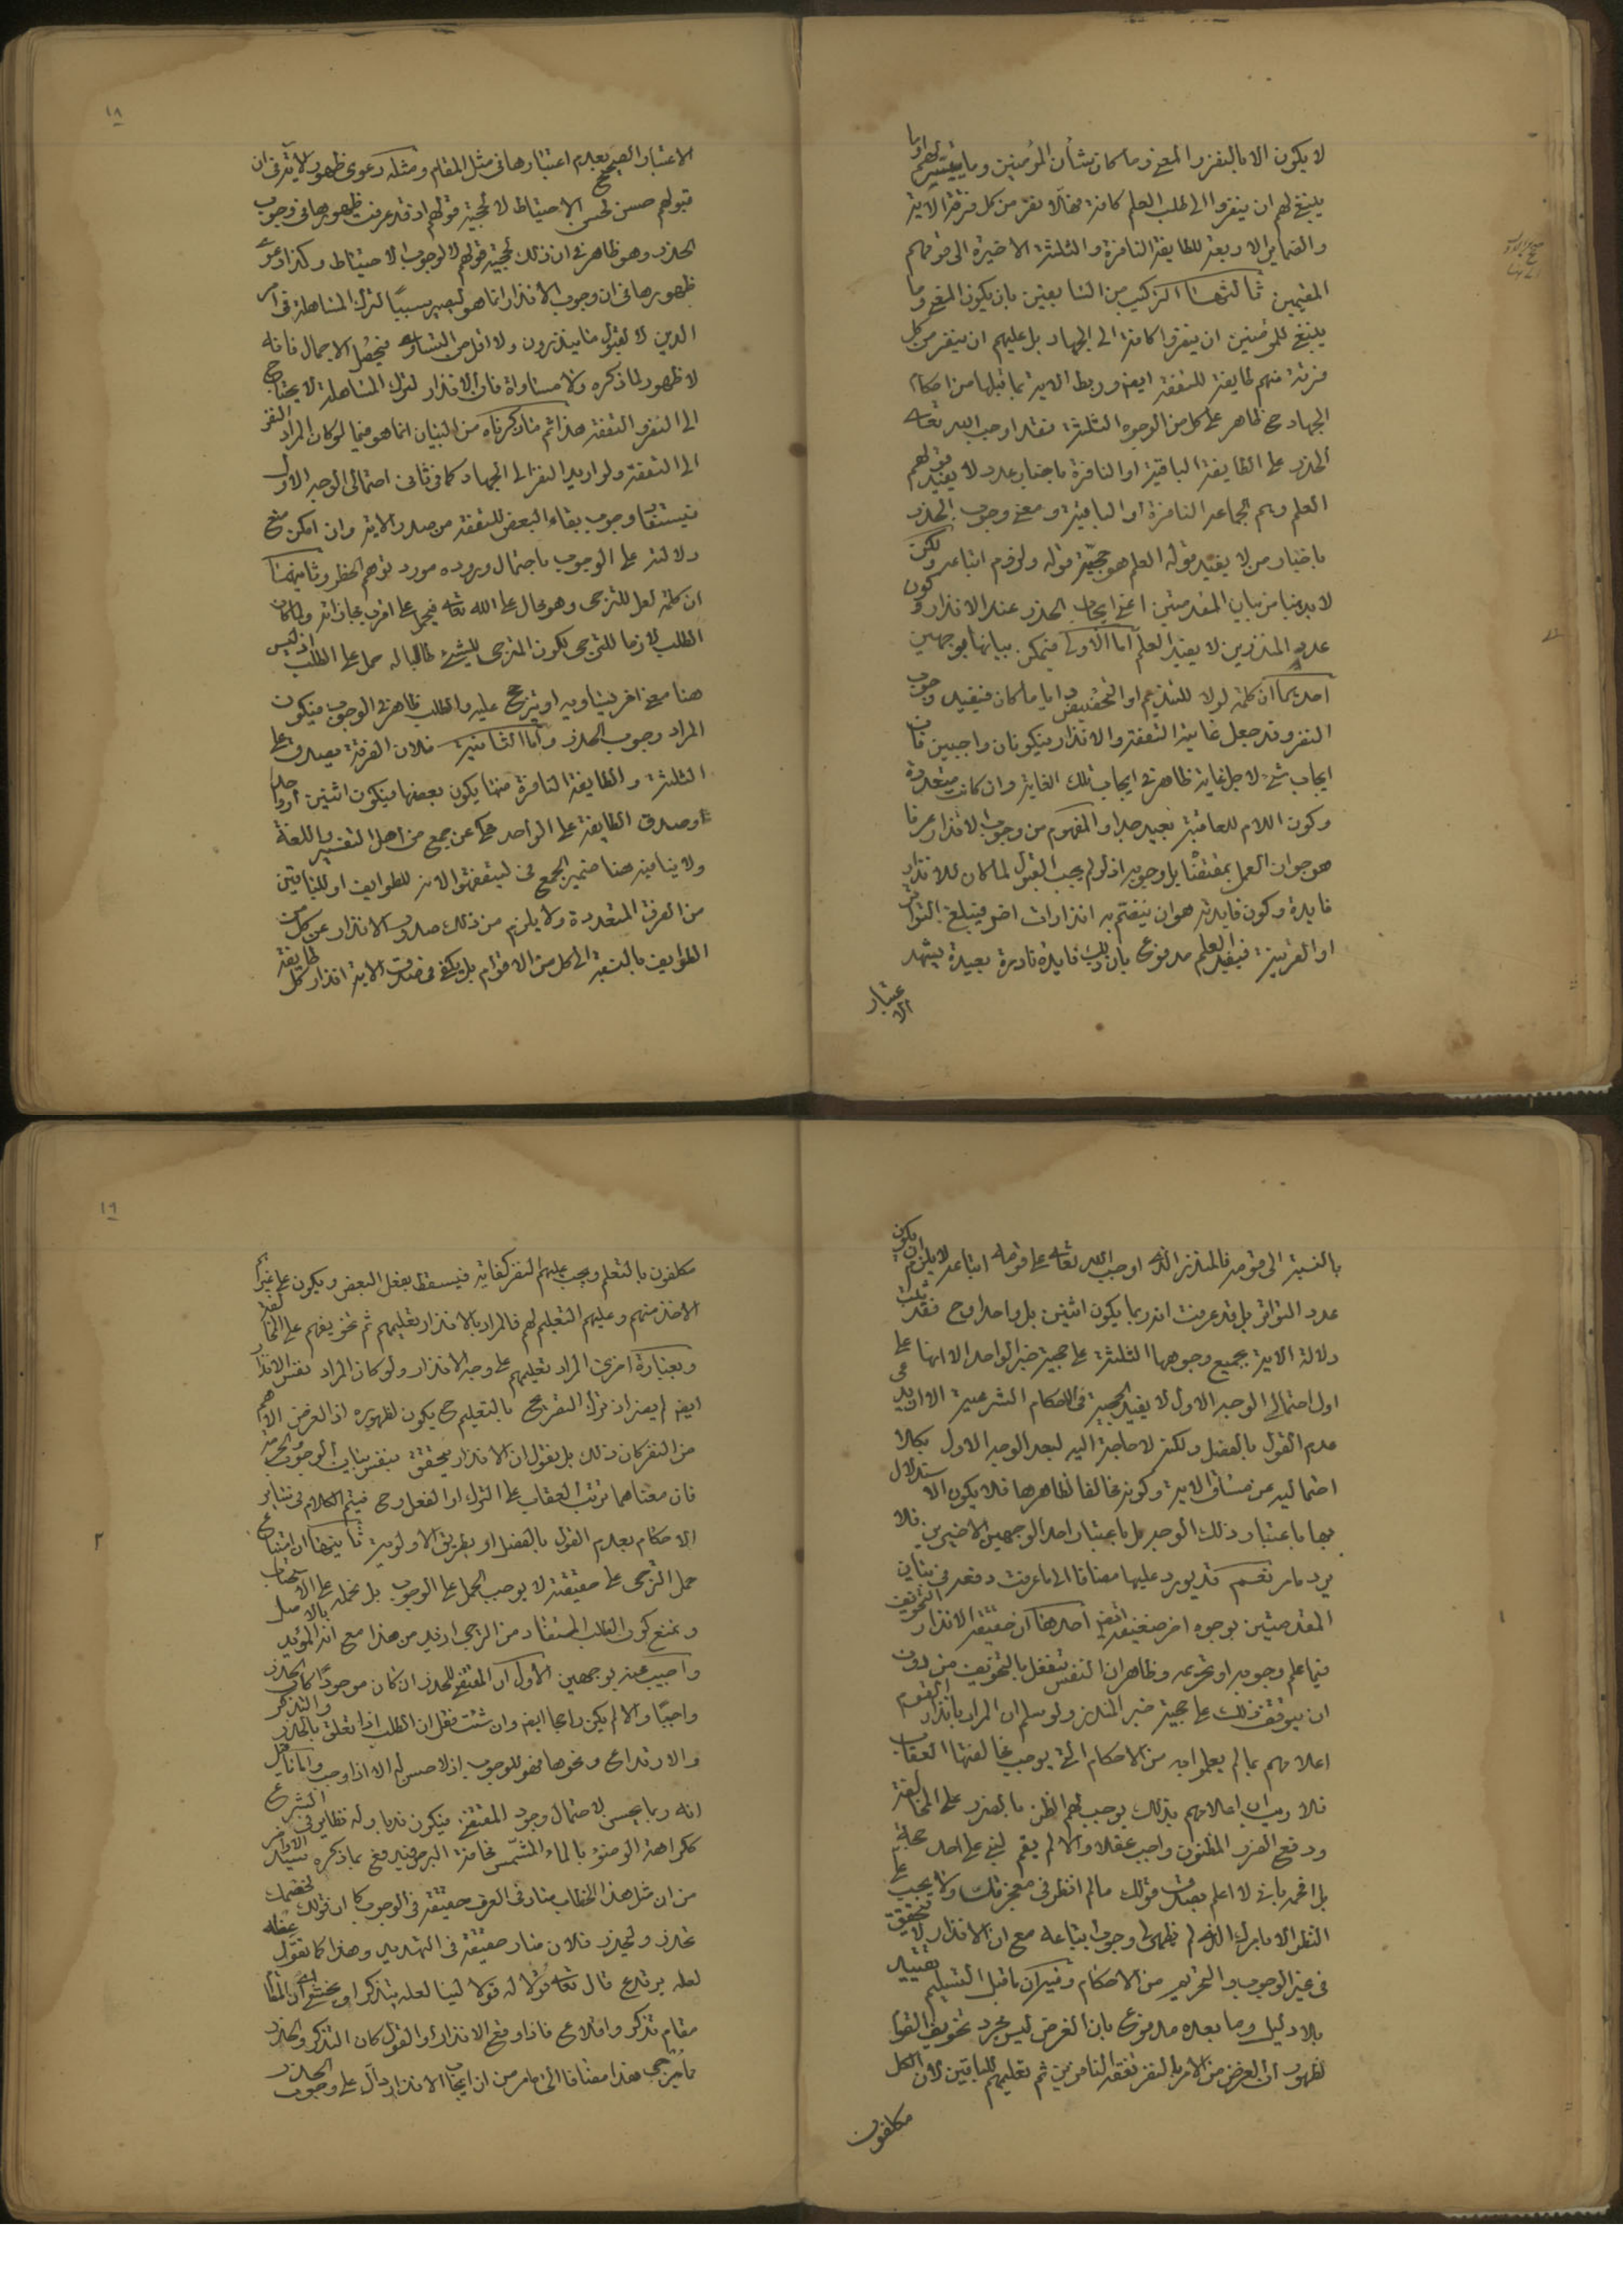 لا يكون الا بالنفر والمعنى وما كان شأن المؤمنين وما يتيسر لهم او ما
ينبغي لهم ان ينفروا الى طلب العلم كافة فهلا نفر من كل فرقة الاية
والضماير الاربعة للطايفة النافرة والثلثة الاخيرة الى قومهم
المقيمين ثالثها التركيب من السابقين بان يكون المعنى وما
ينبغي للمؤمنين ان ينفروا كافة الى الجهاد بل عليهم ان ينفر من كل
فرقة منهم طايفة للتفقه ايضا وربط الاية بما قبلها من احكام
الجهاد ح ظاهر على كل من الوجوه الثلثة فقد اوجب الله تعالى
الحذر على الطايفة الباقية او النافرة باخبار عدد لا يفيد قولهم
العلم وهم الجماعة النافرة او الباقية ومعنى وجوب الحذر
باخبار من لا يفيد قوله العلم هو حجية قوله ولزوم اتباعه ولكن
لابد هنا من بيان المقدمتين اعني ايجاب الحذر عند الانذار وكون
عدد المنذرين لا يفيد العلم اما الاولى فيمكن بيانها بوجهين
احدهما ان كلمة لولا للتنديم او التحضيض و اياما كان فيفيد وجوب
النفر وقد جعل غايته التفقه والانذار فيكونان واجبين فان
ايجاب شيء لاجل غاية ظاهر في ايجاب تلك الغاية وان كانت متعددة
وكون اللام للعاقبة بعيد جدا والمفهوم من وجوب الانذار عرفا
هو جواز العمل بمقتضاه بل وجوبه اذ لو لم يجب القبول لما كان للانذار
فايدة وكون فايدته هو ان ينضم به انذارات اخر فيبلغ التواتر
او القرينة فيفيد العلم مدفوع بان تلك فايدة نادرة بعيدة يشهد
الاعتبار
١٨
الاعتبار الصحيح بعدم اعتبارها في مثل المقام ومثله دعوى ظهور الاية في ان
قبولهم حسن لحسن الاحتياط لا لحجية قولهم اذ قد عرفت ظهورها في وجوب
الحذر وهو ظاهر في ان ذلك لحجية قولهم لا لوجوب الاحتياط وكذا دعوى
ظهورها في ان وجوب الانذار انما هو ليصير سببا لترك المساهلة في امر
الدين لا لقبول ما ينذرون ولا اقل من التساوي فيحصل الاجمال فانه
لا ظهور لما ذكره ولا مساواة فان الانذار لترك المساهلة لا يحتاج
الى النفر والتفقه هذا ثم ما ذكرناه من البيان انما هو فيما لو كان المراد النفر
الى التفقه ولو اريد النفر الى الجهاد كما في ثاني احتمالي الوجه الاول
فيستفاد وجوب بقاء البعض للتفقه من صدر الاية وان امكن منع
دلالته على الوجوب باحتمال وروده مورد توهم الحظر وثانيهما
ان كلمة لعل للترجي وهو محال على الله تعالى فيحمل على اقرب مجازاته ولما كان
الطلب لازما للترجي لكون المترجي للشيء طالبا له حمل على الطلب اذ ليس
هنا معنى اخر يساويه او يترجح عليه والطلب ظاهر في الوجوب فيكون
المراد وجوب الحذر واما الثانية فلان الفرقة يصدق على
الثلثة والطايفة النافرة منها يكون بعضها فيكون اثنين او واحدا
وصدق الطايفة على الواحد محكي عن جمع من اهل التفسير واللغة
ولا ينافيه هنا ضمير الجمع في ليتفقهوا لانه للطوايف او للباقين
من الفرق المتعددة ولا يلزم من ذلك صدور الانذار عن كل من
الطوايف بالنسبة الى كل من الاقوام بل يكفي في صدق الاية انذار كل طايفة
بالنسبة الى قومه فالمنذر الذي اوجب الله تعالى على قومه اتباعه لا يلزم ان يكون
عدد التواتر بل قد عرفت انه ربما يكون اثنين بل واحدا وح فقد ثبت
دلالة الاية بجميع وجوهها الثلثة على حجية خبر الواحد الا انها على
اول احتمالي الوجه الاول لا يفيد الحجية في الاحكام الشرعية الا ان يدعى
عدم القول بالفصل ولكن لا حاجة اليه لبعد الوجه الاول بكلا
احتماليه عن مساق الاية وكونه مخالفا لظاهرها فلا يكون الاستدلال
بها باعتبار ذلك الوجه بل باعتبار احد الوجهين الاخيرين فلا
يرد ما مر نعم قد يورد عليها مضافا الى ما عرفت دفعه في بيان
المقدمتين بوجوه اخر ضعيفة ايضا احدها ان حقيقة الانذار التخويف
فيما علم وجوبه او تحريمه وظاهر ان النفس تنفعل بالتخويف من دون
ان يتوقف ذلك على حجية خبر المنذر ولو سلم ان المراد بانذار القوم
اعلامهم بما لم يعلموا به من الاحكام التي يوجب مخالفتها العقاب
فلا ريب ان اعلامهم بذلك يوجب لهم الظن بالضرر على المخالفة
ودفع الضرر المظنون واجب عقلا والا لم يقم لنبي على احد حجة
بل افحمه باني لا اعلم بصدق قولك ما لم انظر في معجزتك ولا يجب على
النظر الا بامرك الذي لم يظهر لي وجوب اتباعه مع ان الانذار لا يتحقق
في غير الوجوب والتحريم من الاحكام وفيه ان ما قبل التسليم تقييد
بلا دليل وما بعده مدفوع بان الغرض ليس مجرد تخويف القوم
لظهور ان الغرض من الامر بالنفر تفقه النافرين ثم تعليمهم للباقين لان الكل
مكلفون
١٩
مكلفون بالتعلم ويجب عليهم النفر كفاية فيسقط بفعل البعض ويكون على غيرهم
الاخذ منهم وعليهم التعليم لهم فالمراد بالانذار تعليمهم ثم تخويفهم على المخالفة
وبعبارة اخرى المراد تعليمهم على وجه الانذار ولو كان المراد نفس الانذار
ايضا لم يضر اذ ترك التصريح بالتعليم ح يكون لظهوره اذ الغرض الاهم
من النفر كان ذلك بل نقول ان الانذار يتحقق بنفس بيان الوجوب والحرمة
فان معناهما ترتب العقاب على الترك او الفعل وح فيتم الكلام في ساير
الاحكام بعدم القول بالفصل او بطريق الاولوية ثانيها ان امتناع
حمل الترجي على حقيقته لا يوجب الحمل على الوجوب بل نحمله على الاستحباب
ونمنع كون الطلب المستفاد من الترجي ازيد من هذا مع انه المؤيد بالاصل
واجيب عنه بوجهين الاول ان المقتضي للحذر ان كان موجودا كان الحذر
واجبا والا لم يكن راجحا ايضا وان شئت فقل ان الطلب اذا تعلق بالحذر والتذكر
والارتداع ونحوها فهو للوجوب اذ لا حسن لها الا اذا وجب واما ما قيل
انه ربما يحسن لاحتمال وجود المقتضي فيكون ندبا وله نظاير في الشرع
ككراهة الوضوء بالماء المشمس مخافة البرص فيدفع بما ذكره سيد الاواخر
من ان مثل هذا الخطاب صار في العرف حقيقة في الوجوب كما ان قولك لخصمك
تحذر وليحذر فلان صار حقيقة في التهديد وهذا كما تقول عظه
لعله يرتدع قال تعالى فقولا له قولا لينا لعله يتذكر او يخشى اي ان المقام
مقام تذكر واقلاع فاذا وقع الانذار او القول كان التذكر والحذر
ما يترجى هذا مضافا الى ما مر من ان ايجاب الانذار دال على وجوب الحذر